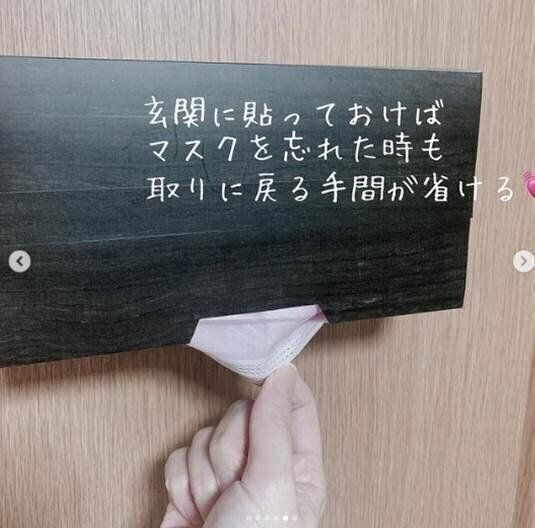 玄関に貼っておけば
マスクを忘れた時も
取りに戻る手間が省ける💓